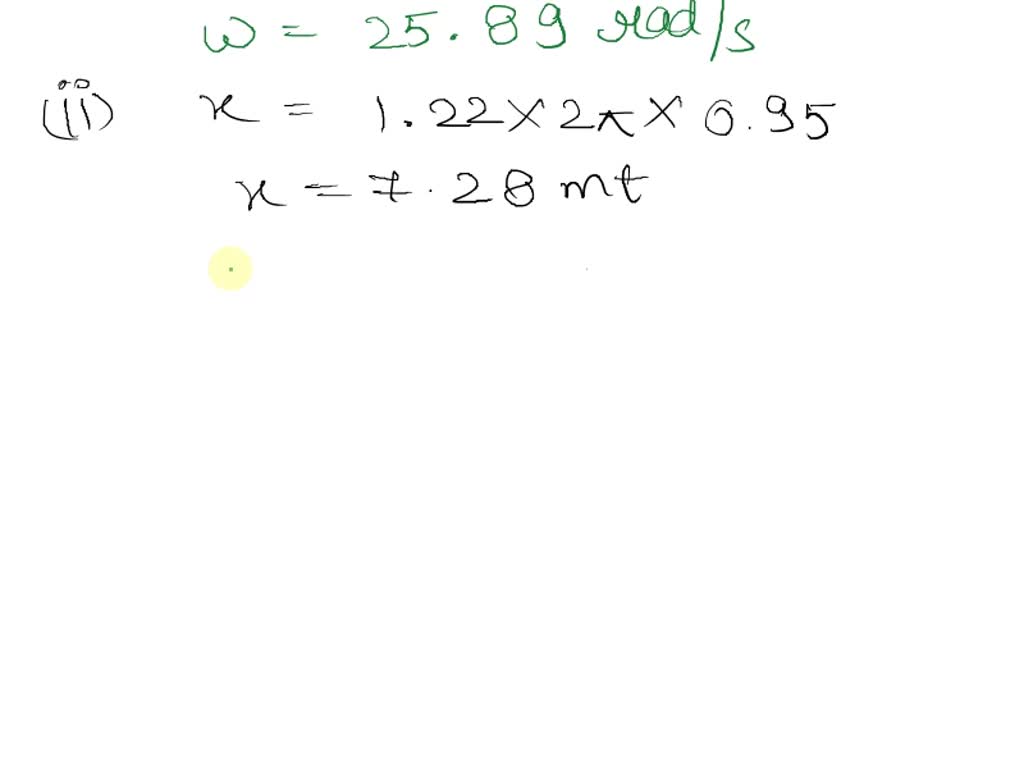 ω = 25.89 rad/s
(ii) x = 1.22 × 2π × 0.95
x = 7.28 mt